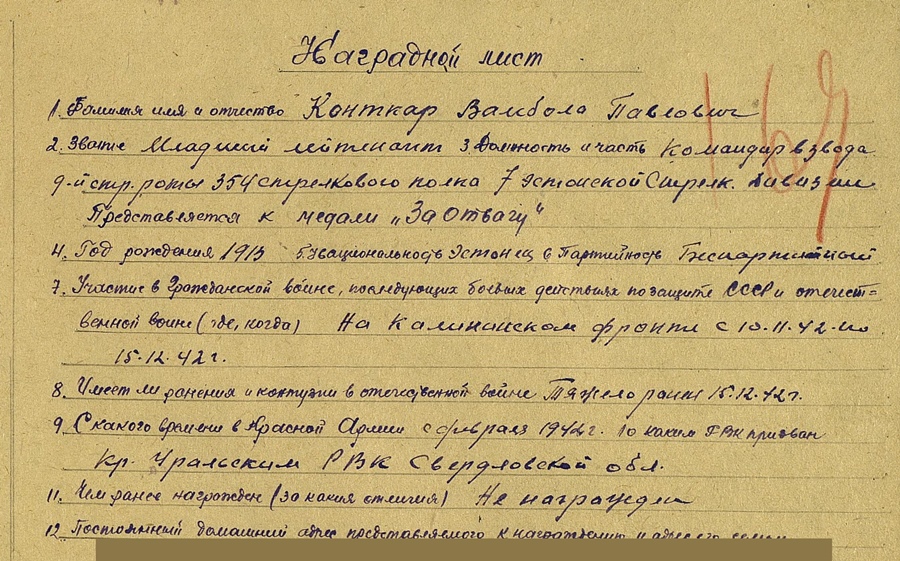 Наградной лист
167
1. Фамилия имя и отчество Конткар Вамбола Павлович
2. Звание Младший лейтенант 3. Должность и часть Командир взвода
9-й стр. роты 354 стрелкового полка 7 Эстонской Стрелк. Дивизии
Представляется к медали „За Отвагу“
4. Год рождения 1913 5. Национальность Эстонец 6 Партийность Беспартийный
7. Участие в Гражданской войне, последующих боевых действиях по защите СССР и отечест=
венной войне (где, когда) На Калининском фронте с 10.11.42 по
15.12.42 г.
8. Имеет ли ранения и контузии в отечественной войне Тяжело ранен 15.12.42 г.
9. С какого времени в Красной Армии с февраля 1942 г. 10 каким РВК призван
Кр. Уральским РВК Свердловской обл.
11. Чем ранее награжден (за какия отличия) Не награжден
12. Постоянный домашний адрес представляемого к награждению и адрес его семьи